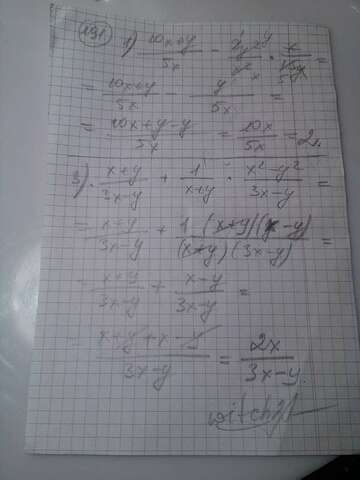 191.
1) (10x+y)/5x − 3y²/x² · x/15y =
= (10x+y)/5x − y/5x =
= (10x+y−y)/5x = 10x/5x = 2.
3). (x+y)/(3x−y) + 1/(x+y) · (x²−y²)/(3x−y) =
= (x+y)/(3x−y) + 1(x+y)(x−y)/(x+y)(3x−y) =
= (x+y)/(3x−y) + (x−y)/(3x−y) =
= (x+y+x−y)/(3x−y) = 2x/(3x−y).